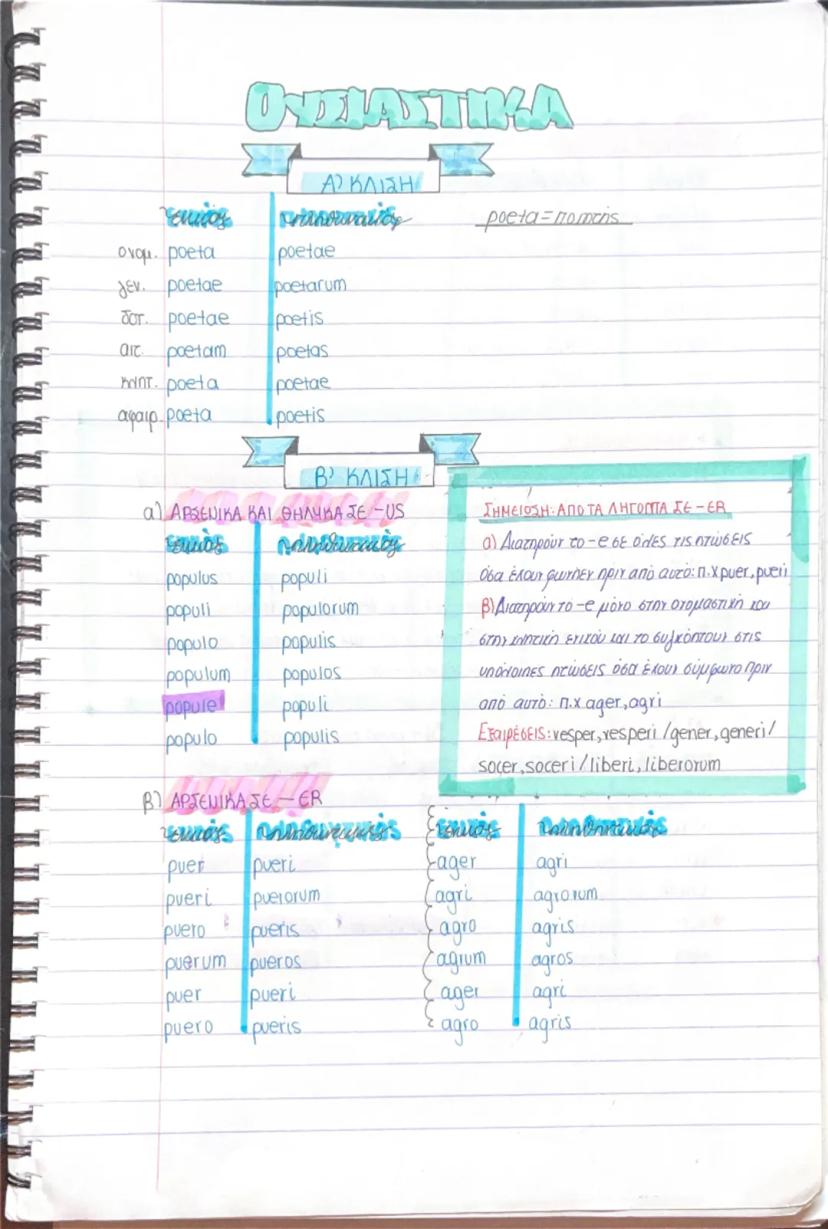 ΟΥΣΙΑΣΤΙΚΑ
Α) ΚΛΙΣΗ
Ενικός Πληθυντικός poeta=ποιητής
ονομ. poeta poetae
γεν. poetae poetarum
δοτ. poetae poetis
αιτ. poetam poetas
κλητ. poeta poetae
αφαιρ. poeta poetis
Β' ΚΛΙΣΗ
α) ΑΡΣΕΝΙΚΑ ΚΑΙ ΘΗΛΥΚΑ ΣΕ -US
Ενικός Πληθυντικός
populus populi
populi populorum
populo populis
populum populos
popule populi
populo populis
ΣΗΜΕΙΩΣΗ: ΑΠΟ ΤΑ ΛΗΓΟΝΤΑ ΣΕ -ER
α) Διατηρούν το -e σε όλες τις πτώσεις
όσα έχουν φωνήεν πριν από αυτό: π.χ puer, pueri
β) Διατηρούν το -e μόνο στην ονομαστική και
στην κλητική ενικού και το συγκόπτουν στις
υπόλοιπες πτώσεις όσα έχουν σύμφωνο πριν
από αυτό: π.χ ager, agri
Εξαιρέσεις: vesper, vesperi / gener, generi/
socer, soceri / liberi, liberorum
β) ΑΡΣΕΝΙΚΑ ΣΕ -ER
Ενικός Πληθυντικός Ενικός Πληθυντικός
puer pueri ager agri
pueri puerorum agri agrorum
puero pueris agro agris
puerum pueros agrum agros
puer pueri ager agri
puero pueris agro agris